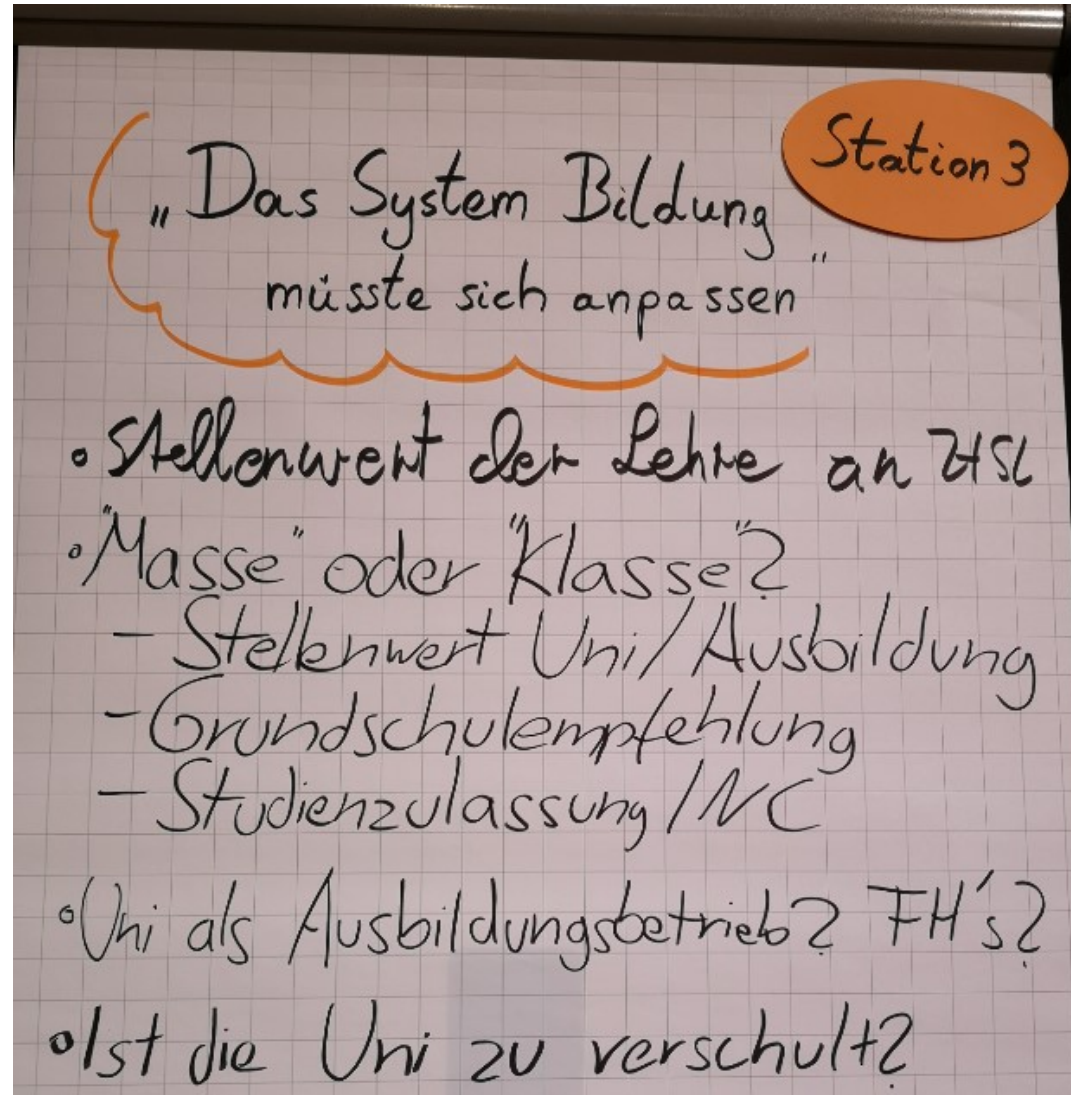 Station 3
„Das System Bildung
müsste sich anpassen"
• Stellenwert der Lehre an
• "Masse" oder "Klasse"?
- Stellenwert Uni/Ausbildung
- Grundschulempfehlung
- Studienzulassung/NC
• Uni als Ausbildungsbetrieb? FH's?
• Ist die Uni zu verschult?